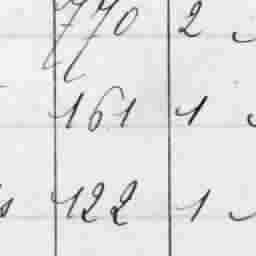 770 2
161 1
s 122 1